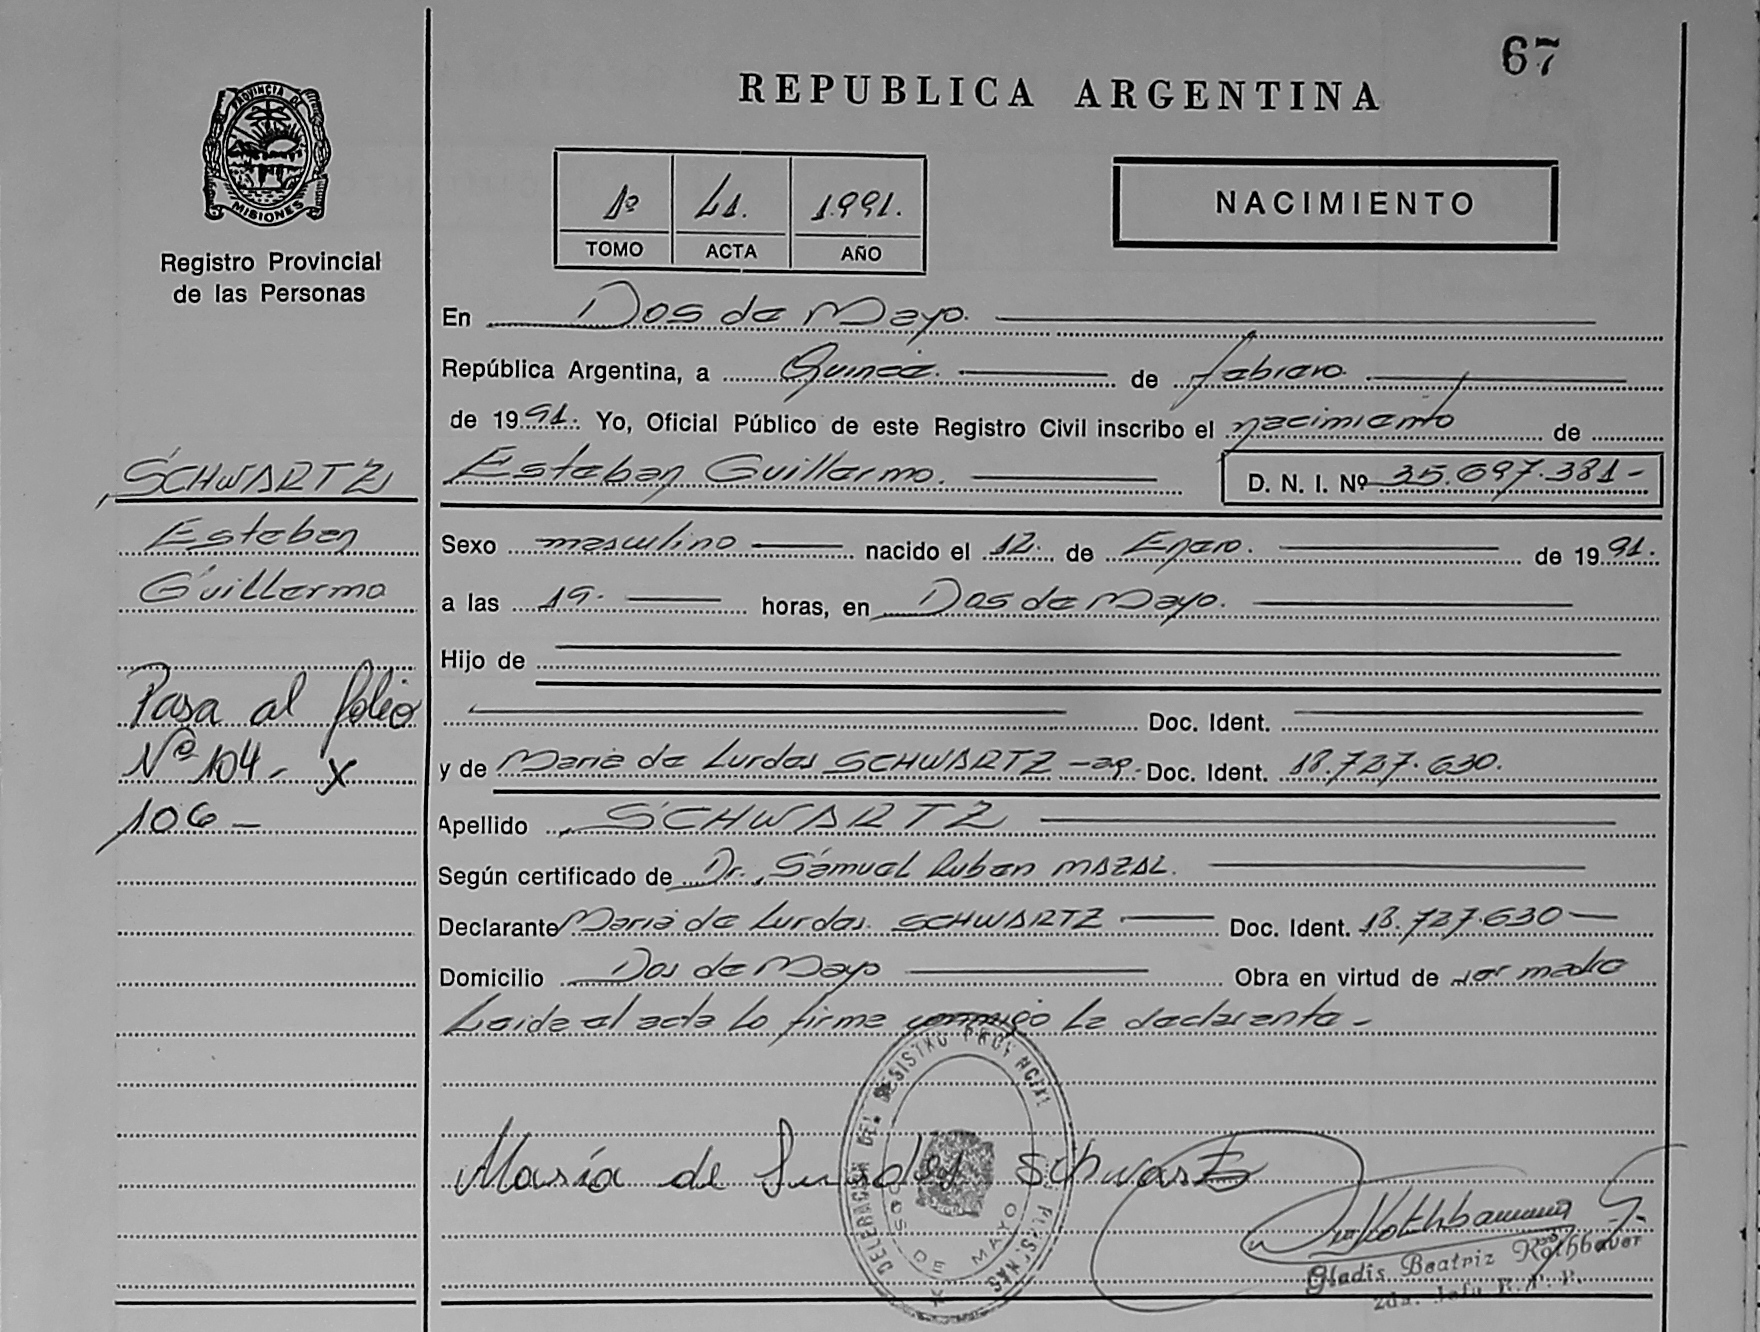 67
REPUBLICA ARGENTINA
PROVINCIA DE
MISIONES
Registro Provincial
de las Personas
1º L1. 1.991.
TOMO ACTA AÑO
NACIMIENTO
En Dos de Mayo.
República Argentina, a Quince. de febrero.
de 1991. Yo, Oficial Público de este Registro Civil inscribo el nacimiento de
SCHWARTZ
Esteban
Guillermo
Pasa al folio
Nº 104 - y
106 -
Esteban Guillermo. D. N. I. Nº 35.697.381-
Sexo masculino nacido el 12. de Enero. de 1991.
a las 19. horas, en Dos de Mayo.
Hijo de
Doc. Ident.
y de Maria de Lurdes SCHWARTZ - ag. Doc. Ident. 18.727.630.
Apellido SCHWARTZ
Según certificado de Dr. Samuel Ruben MAZAL.
Declarante Maria de Lurdes. SCHWARTZ Doc. Ident. 18.727.630
Domicilio Dos de Mayo Obra en virtud de ser madre
Leida el acta la firma conmigo la declarante -
DELEGACION DEL REGISTRO PROVINCIAL PERSONAS
DOS DE MAYO
María de Lurdes Schwartz
Gladis Beatriz Rothbauer
2da. Jefa R. P. P.